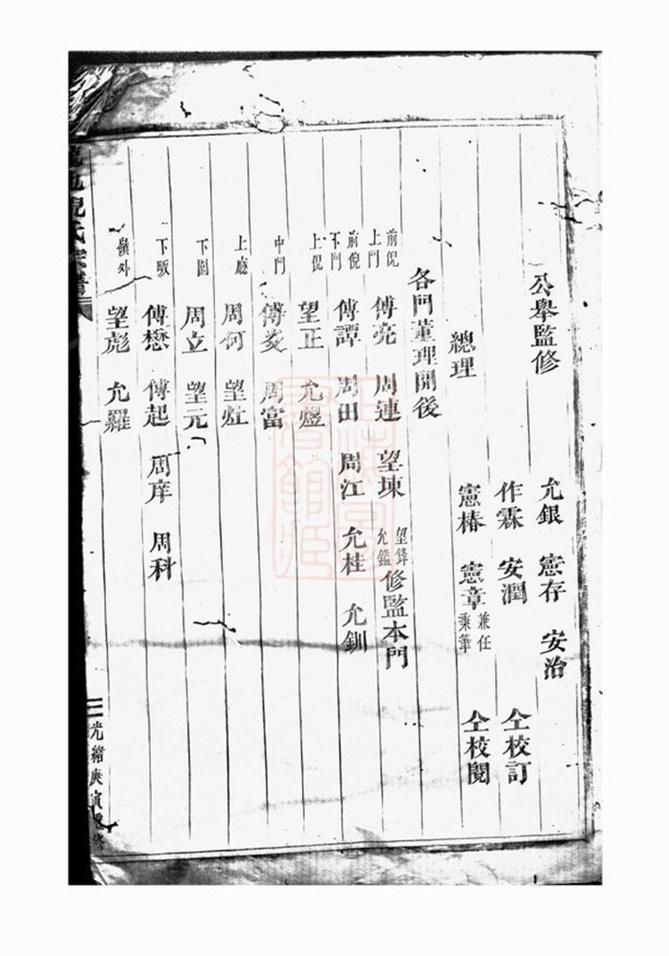 公舉監修
允銀 憲存 安治
作霖 安潤 仝校訂
總理
憲椿 憲章 兼任秉筆 仝校閱
各門董理開後
前倪上門 傅亮 周連 望埬 望鋒 允鑑 修監本門
前倪下門 傅譚 周田 周江 允桂 允釧
上倪 望正 允煜
中門 傅炎 周富
上廳 周何 望灶
下園 周立 望元
下畈 傅懋 傅起 周庠 周科
嶺外 望彪 允羅
倪氏宗譜
三 光緒庚寅重修